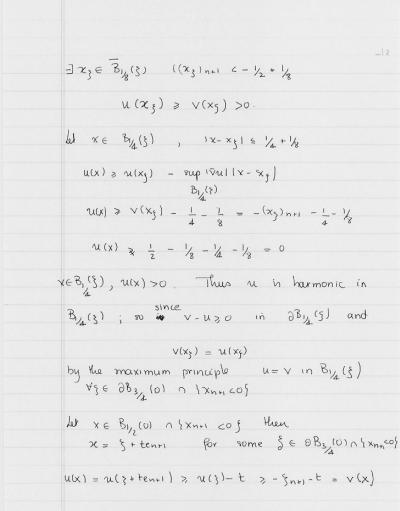 ∃ x_ξ ∈ B̄_{1/8}(ξ) ((x_ξ)_{n+1} < -1/2 + 1/8
u(x_ξ) ≥ v(x_ξ) > 0.
Let x ∈ B_{1/4}(ξ) , |x-x_ξ| ≤ 1/4 + 1/8
u(x) ≥ u(x_ξ) - sup |∇u| |x - x_ξ|
B_{1/4}(ξ)
u(x) ≥ v(x_ξ) - 1/4 - 1/8 = -(x_ξ)_{n+1} - 1/4 - 1/8
u(x) ≥ 1/2 - 1/8 - 1/4 - 1/8 = 0
x ∈ B_{1/4}(ξ), u(x) > 0. Thus u is harmonic in
B_{1/4}(ξ) ; so since v - u ≥ 0 in ∂B_{1/4}(ξ) and
v(x_ξ) = u(x_ξ)
by the maximum principle u = v in B_{1/4}(ξ)
∀ξ ∈ ∂B_{3/4}(0) ∩ {x_{n+1} < 0}
Let x ∈ B_{1/2}(0) ∩ {x_{n+1} < 0} then
x = ξ + te_{n+1} for some ξ ∈ ∂B_{3/4}(0) ∩ {x_{n+1} < 0}
u(x) = u(ξ + te_{n+1}) ≥ u(ξ) - t ≥ -ξ_{n+1} - t = v(x)